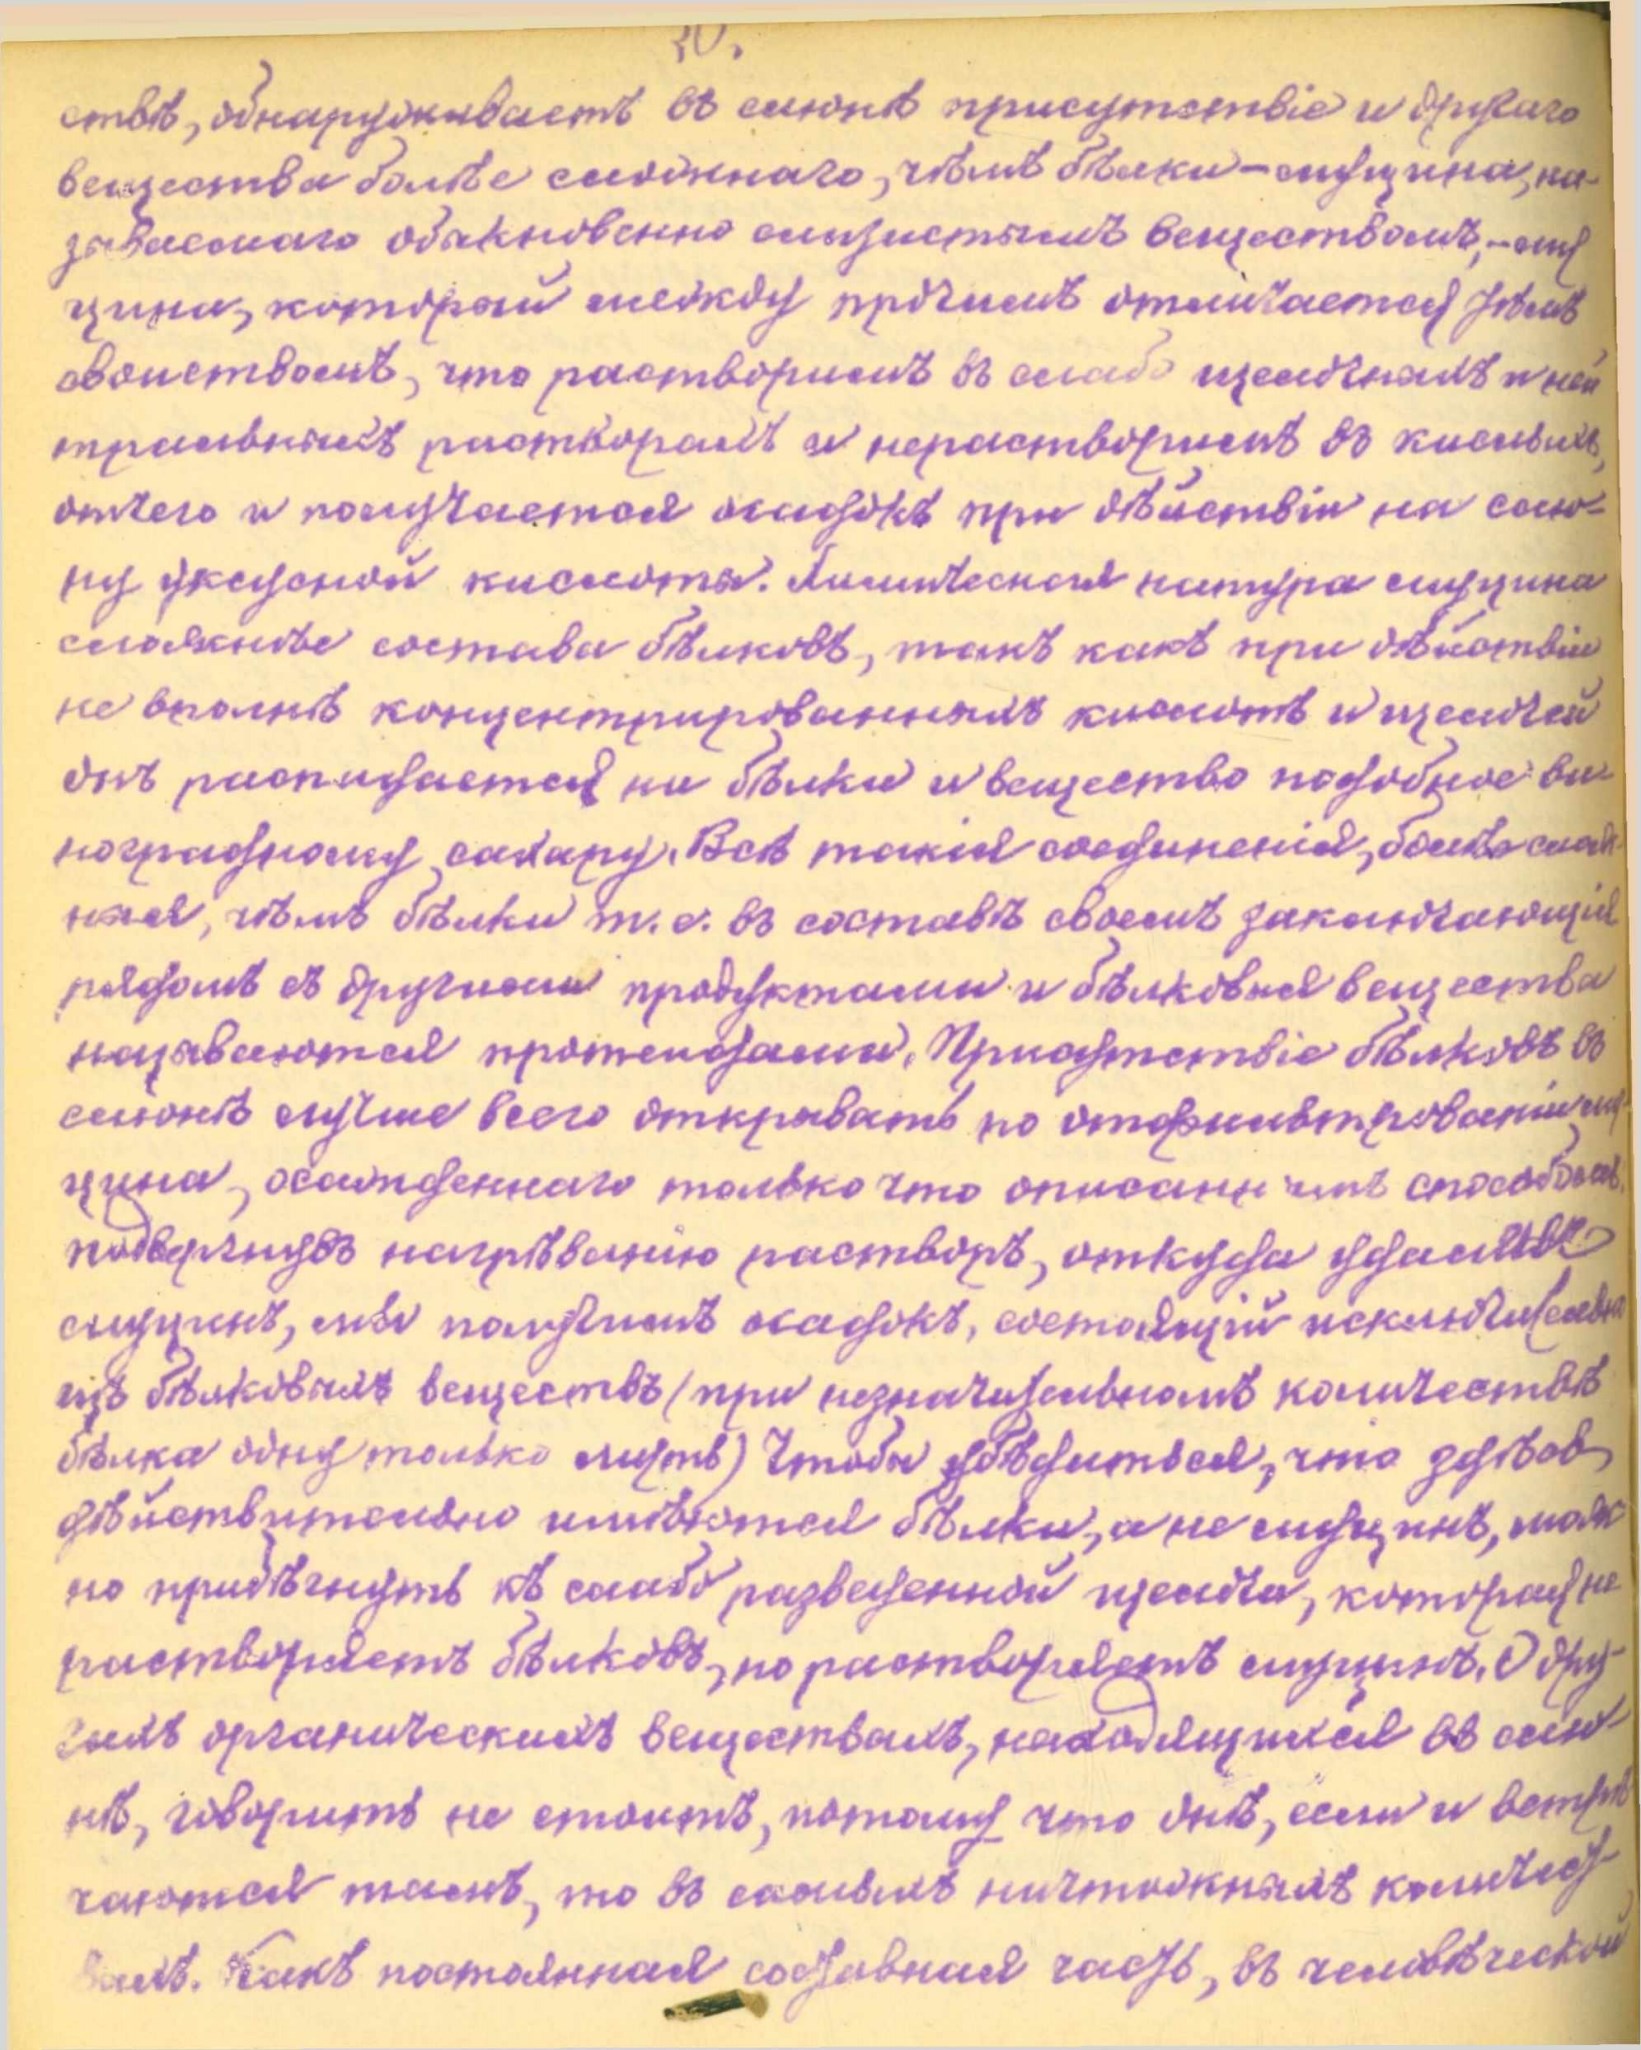 30.
ствѣ, обнаруживаетъ въ слюнѣ присутствіе и другаго
вещества болѣе сложнаго, чѣмъ бѣлки – муцина, на-
зываемаго обыкновенно слизистымъ веществомъ, – му
цина, который между прочимъ отличается тѣмъ
свойствомъ, что растворимъ въ слабо щелочныхъ и ней
тральныхъ растворахъ и нерастворимъ въ кислыхъ,
отчего и получается осадокъ при дѣйствіи на слю-
ну уксусной кислоты. Химическая натура муцина
сложнѣе состава бѣлковъ, такъ какъ при дѣйствіи
не вполнѣ концентрированныхъ кислотъ и щелочей
онъ распадается на бѣлки и вещество подобное ви-
ноградному сахару. Всѣ такія соединенія, болѣе слож-
ныя, чѣмъ бѣлки т. е. въ составѣ своемъ заключающія
рядомъ съ другими продуктами и бѣлковыя вещества
называются протеидами. Присутствіе бѣлковъ въ
слюнѣ лучше всего открывать по отфильтрованіи му-
цина, осажденнаго только что описаннымъ способомъ.
подвергнувъ нагрѣванію растворъ, откуда удаленъ
муцинъ, мы получимъ осадокъ, состоящій исключительно
изъ бѣлковыхъ веществъ (при незначительномъ количествѣ
бѣлка одну только муть) Чтобы убѣдиться, что здѣсь
дѣйствительно имѣются бѣлки, а не муцинъ, мож-
но прибѣгнуть къ слабо разведенной щелочи, которая не
растворяетъ бѣлковъ, но растворяетъ муцинъ. О дру-
гихъ органическихъ веществахъ, находящихся въ слю-
нѣ, говорить не стоитъ, потому что онѣ, если и встрѣ
чаются тамъ, то въ самыхъ ничтожныхъ количест-
вахъ. Какъ постоянная составная часть, въ человѣческой